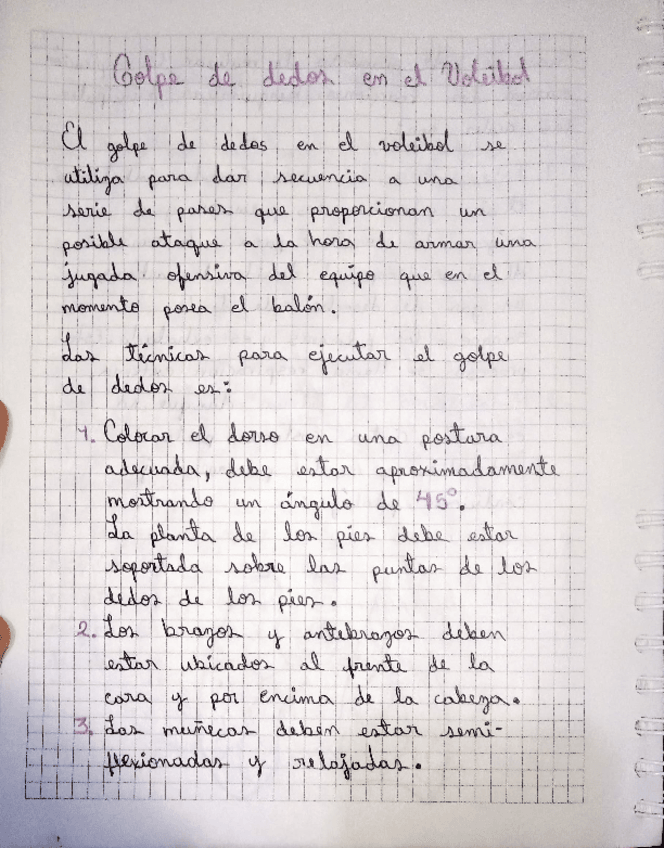 Golpe de dedos en el Voleibol
El golpe de dedos en el voleibol se
utiliza para dar secuencia a una
serie de pases que proporcionan un
posible ataque a la hora de armar una
jugada ofensiva del equipo que en el
momento posea el balón.
Las técnicas para ejecutar el golpe
de dedos es:
1. Colocar el dorso en una postura
adecuada, debe estar aproximadamente
mostrando un ángulo de 45°.
La planta de los pies debe estar
soportada sobre las puntas de los
dedos de los pies.
2. Los brazos y antebrazos deben
estar ubicados al frente de la
cara y por encima de la cabeza.
3. Las muñecas deben estar semi-
flexionadas y relajadas.